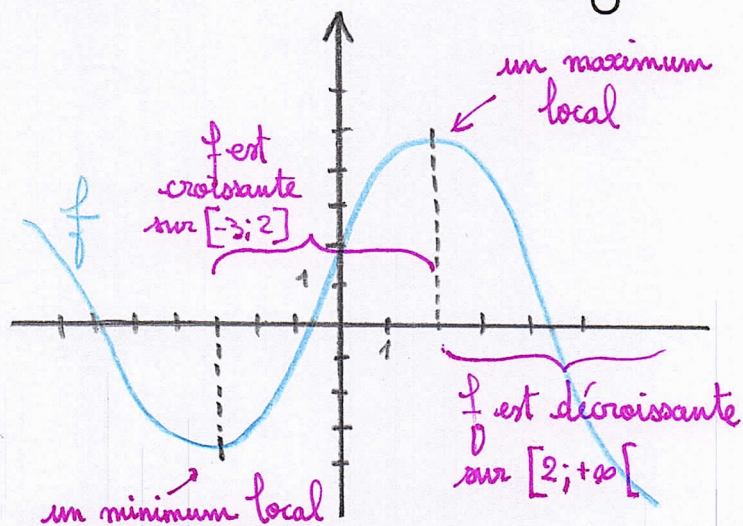 un maximum
local
f est
croissante
sur [-3; 2]
f
1
1
f est décroissante
sur [2; +∞[
un minimum local